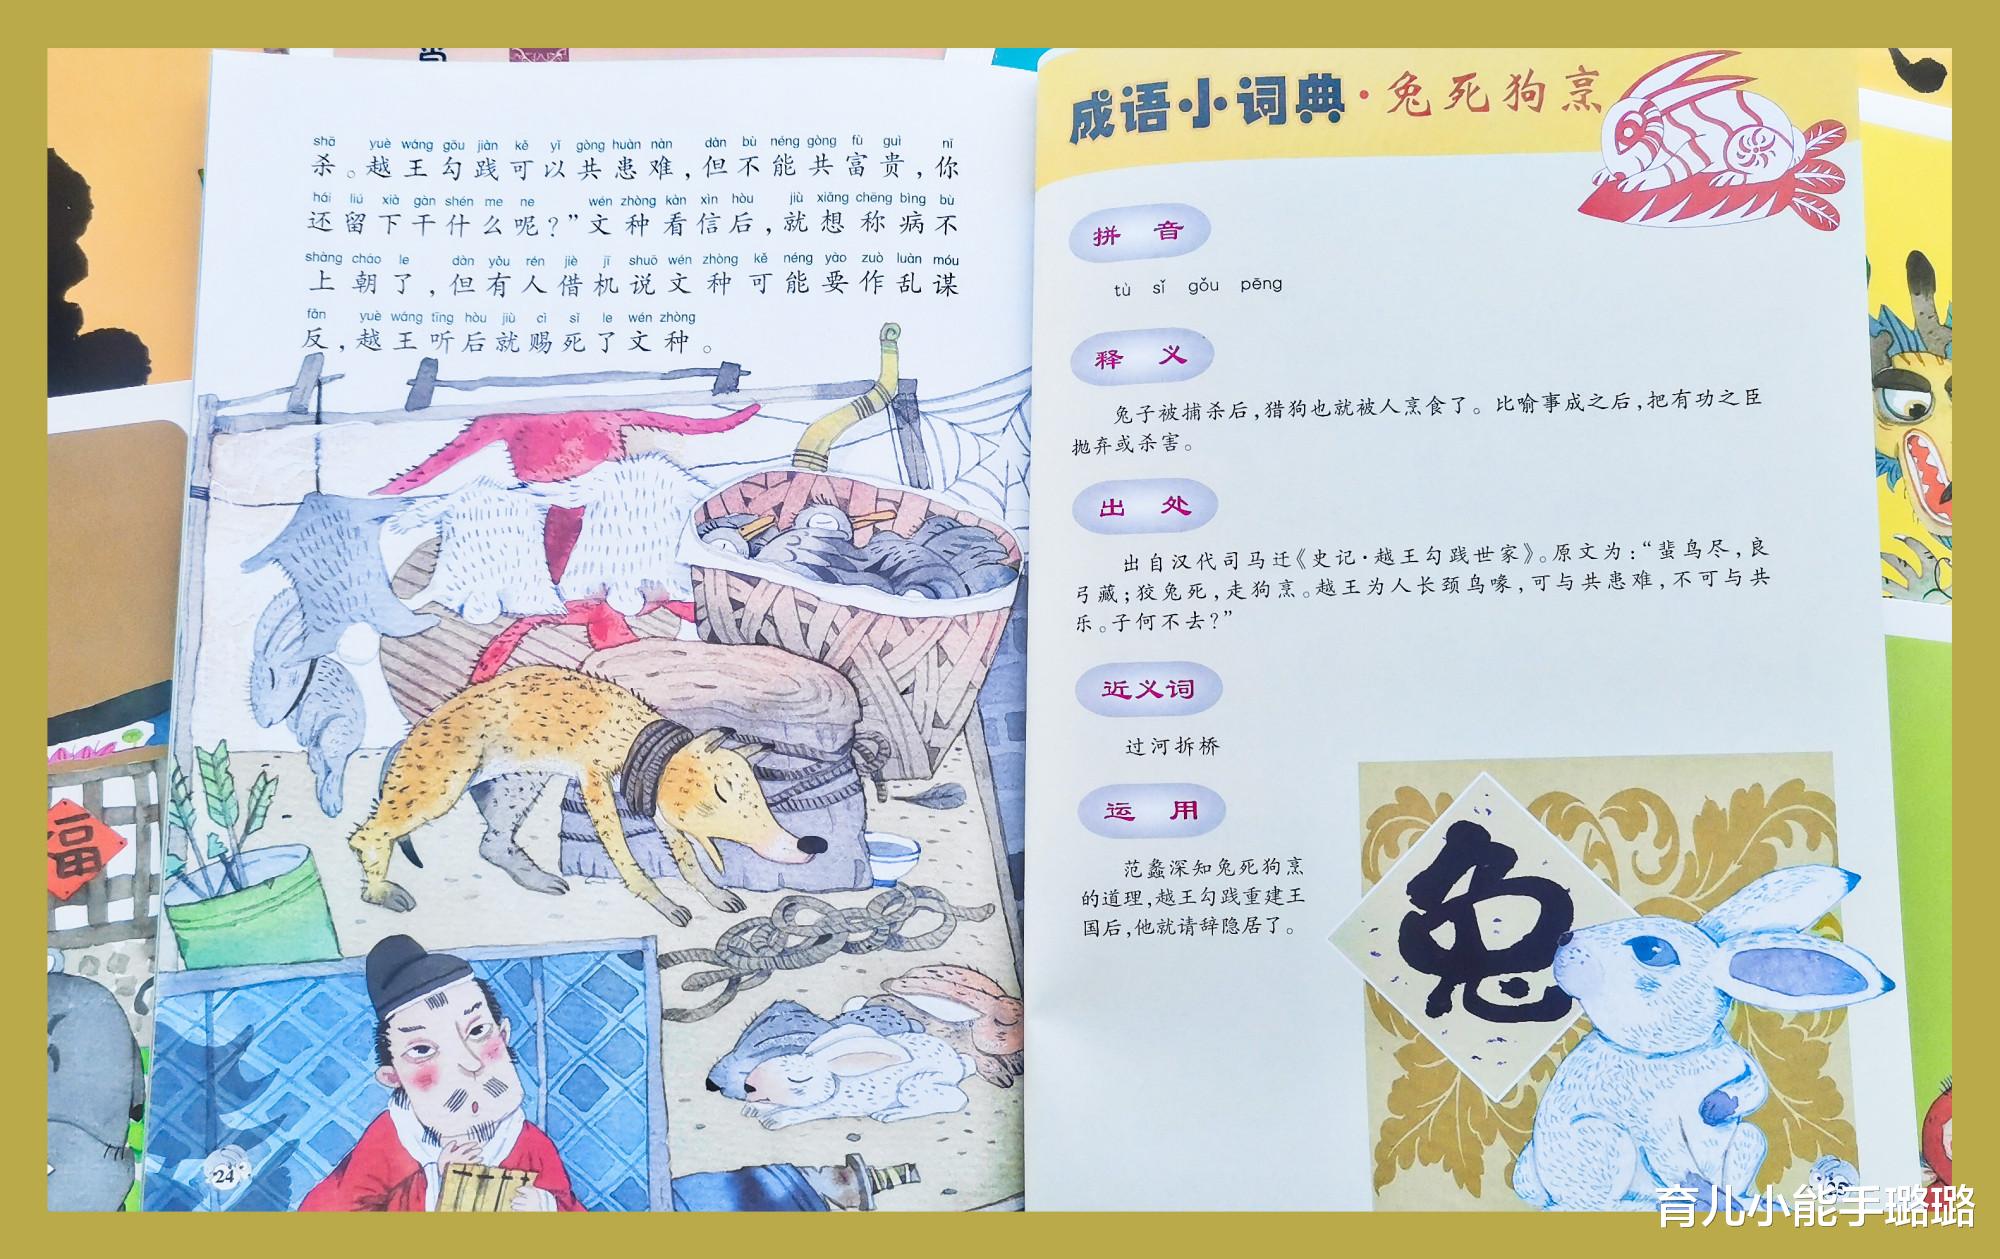 shā yuè wáng gōu jiàn kě yǐ gòng huàn nàn dàn bù néng gòng fù guì nǐ
杀。越王勾践可以共患难,但不能共富贵,你
hái liú xià gàn shén me ne wén zhòng kàn xìn hòu jiù xiǎng chēng bìng bù
还留下干什么呢?”文种看信后,就想称病不
shàng cháo le dàn yǒu rén jiè jī shuō wén zhòng kě néng yào zuò luàn móu
上朝了,但有人借机说文种可能要作乱谋
fǎn yuè wáng tīng hòu jiù cì sǐ le wén zhòng
反,越王听后就赐死了文种。
24
成语小词典·兔死狗烹
拼音
tù sǐ gǒu pēng
释义
兔子被捕杀后,猎狗也就被人烹食了。比喻事成之后,把有功之臣
抛弃或杀害。
出处
出自汉代司马迁《史记·越王勾践世家》。原文为:“蜚鸟尽,良
弓藏;狡兔死,走狗烹。越王为人长颈鸟喙,可与共患难,不可与共
乐。子何不去?”
近义词
过河拆桥
运用
范蠡深知兔死狗烹
的道理,越王勾践重建王
国后,他就请辞隐居了。
兔
福
育儿小能手璐璐